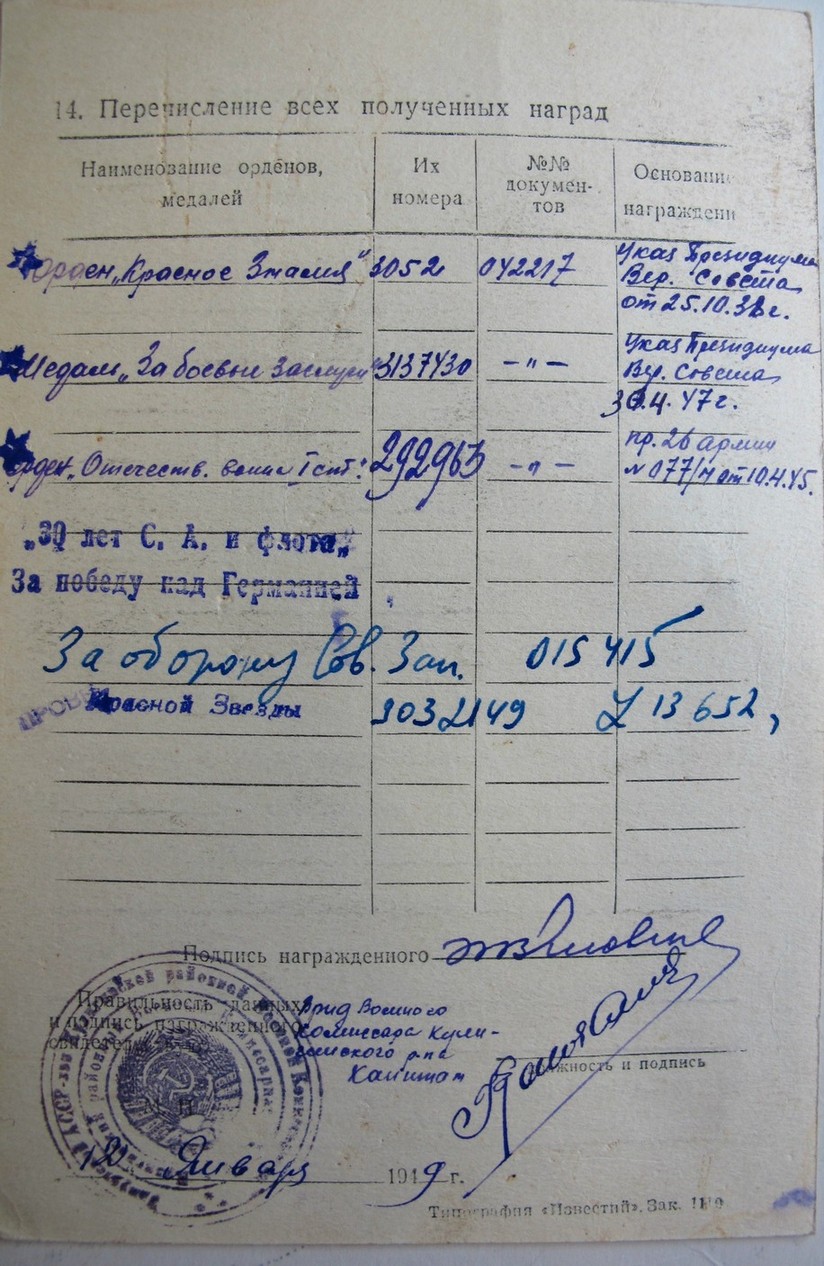 14. Перечисление всех полученных наград
Наименование орденов, медалей
Их номера
№№ докумен-
тов
Основание
награждени
Орден „Красное Знамя" 3052 042217 Указ Президиума
Вер. Совета
от 25.10.38 г.
Медаль „За боевые Заслуги" 3137430 —„— Указ Президиума
Вер. Совета
30.4.47 г.
Орден „Отечеств. войны I ст." 292963 —„— пр. 26 армии
№ 077/н от 10.4.45.
„30 лет С. А. и флота„
За победу над Германией
За оборону Сов. Зап. 015415
Красной Звезды 3032149 13652,
Подпись награжденного
Правильность данных
и подпись награжденного
Врид Военного
Комиссара
Капитан
должность и подпись
Января 1949 г.
Типография «Известий». Зак.